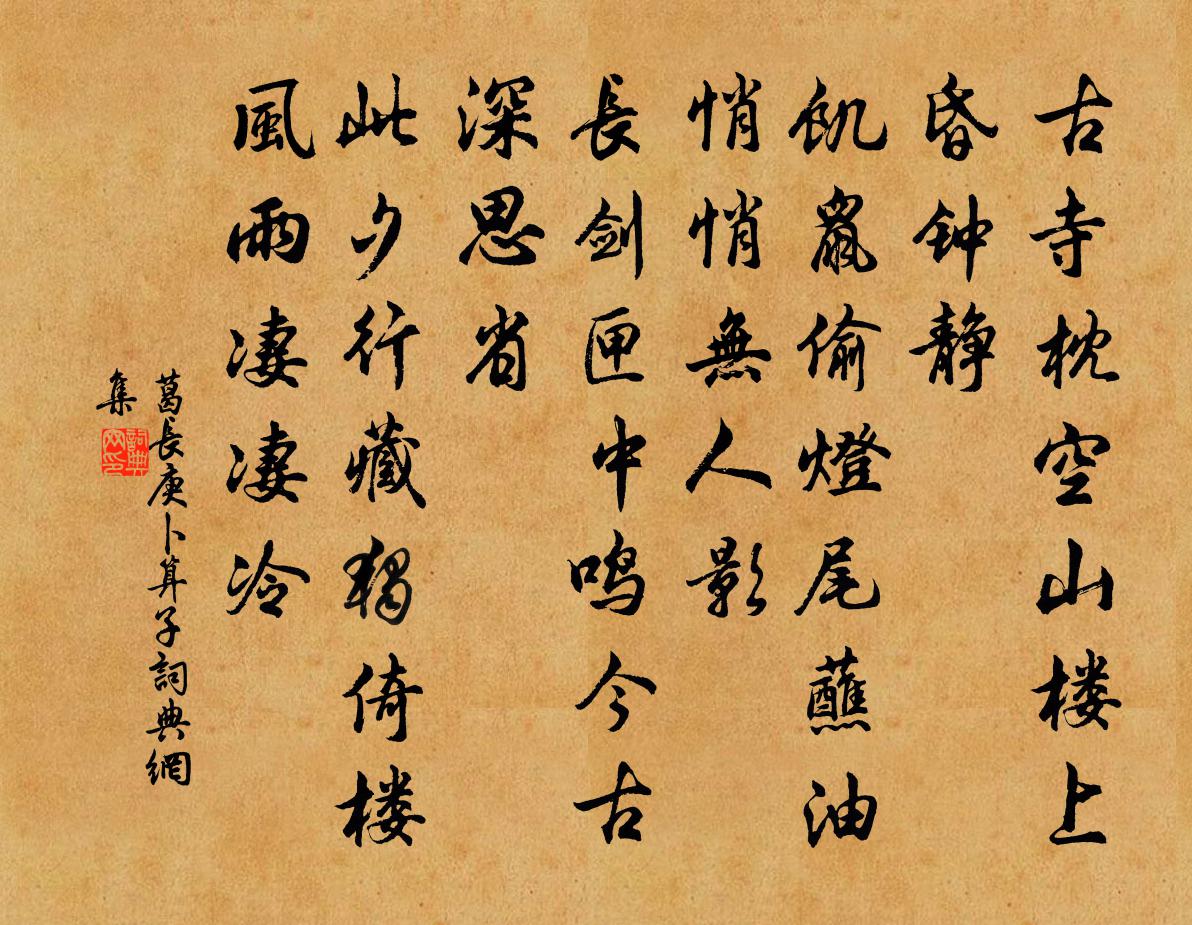 古寺枕空山楼上
昏钟静
飢鼠偷燈尾蘸油
悄悄無人影
長剑匣中鸣今古
深思省
此夕行藏独倚楼
風雨凄凄冷
葛長庚卜算子詞典網
集
詞典网印